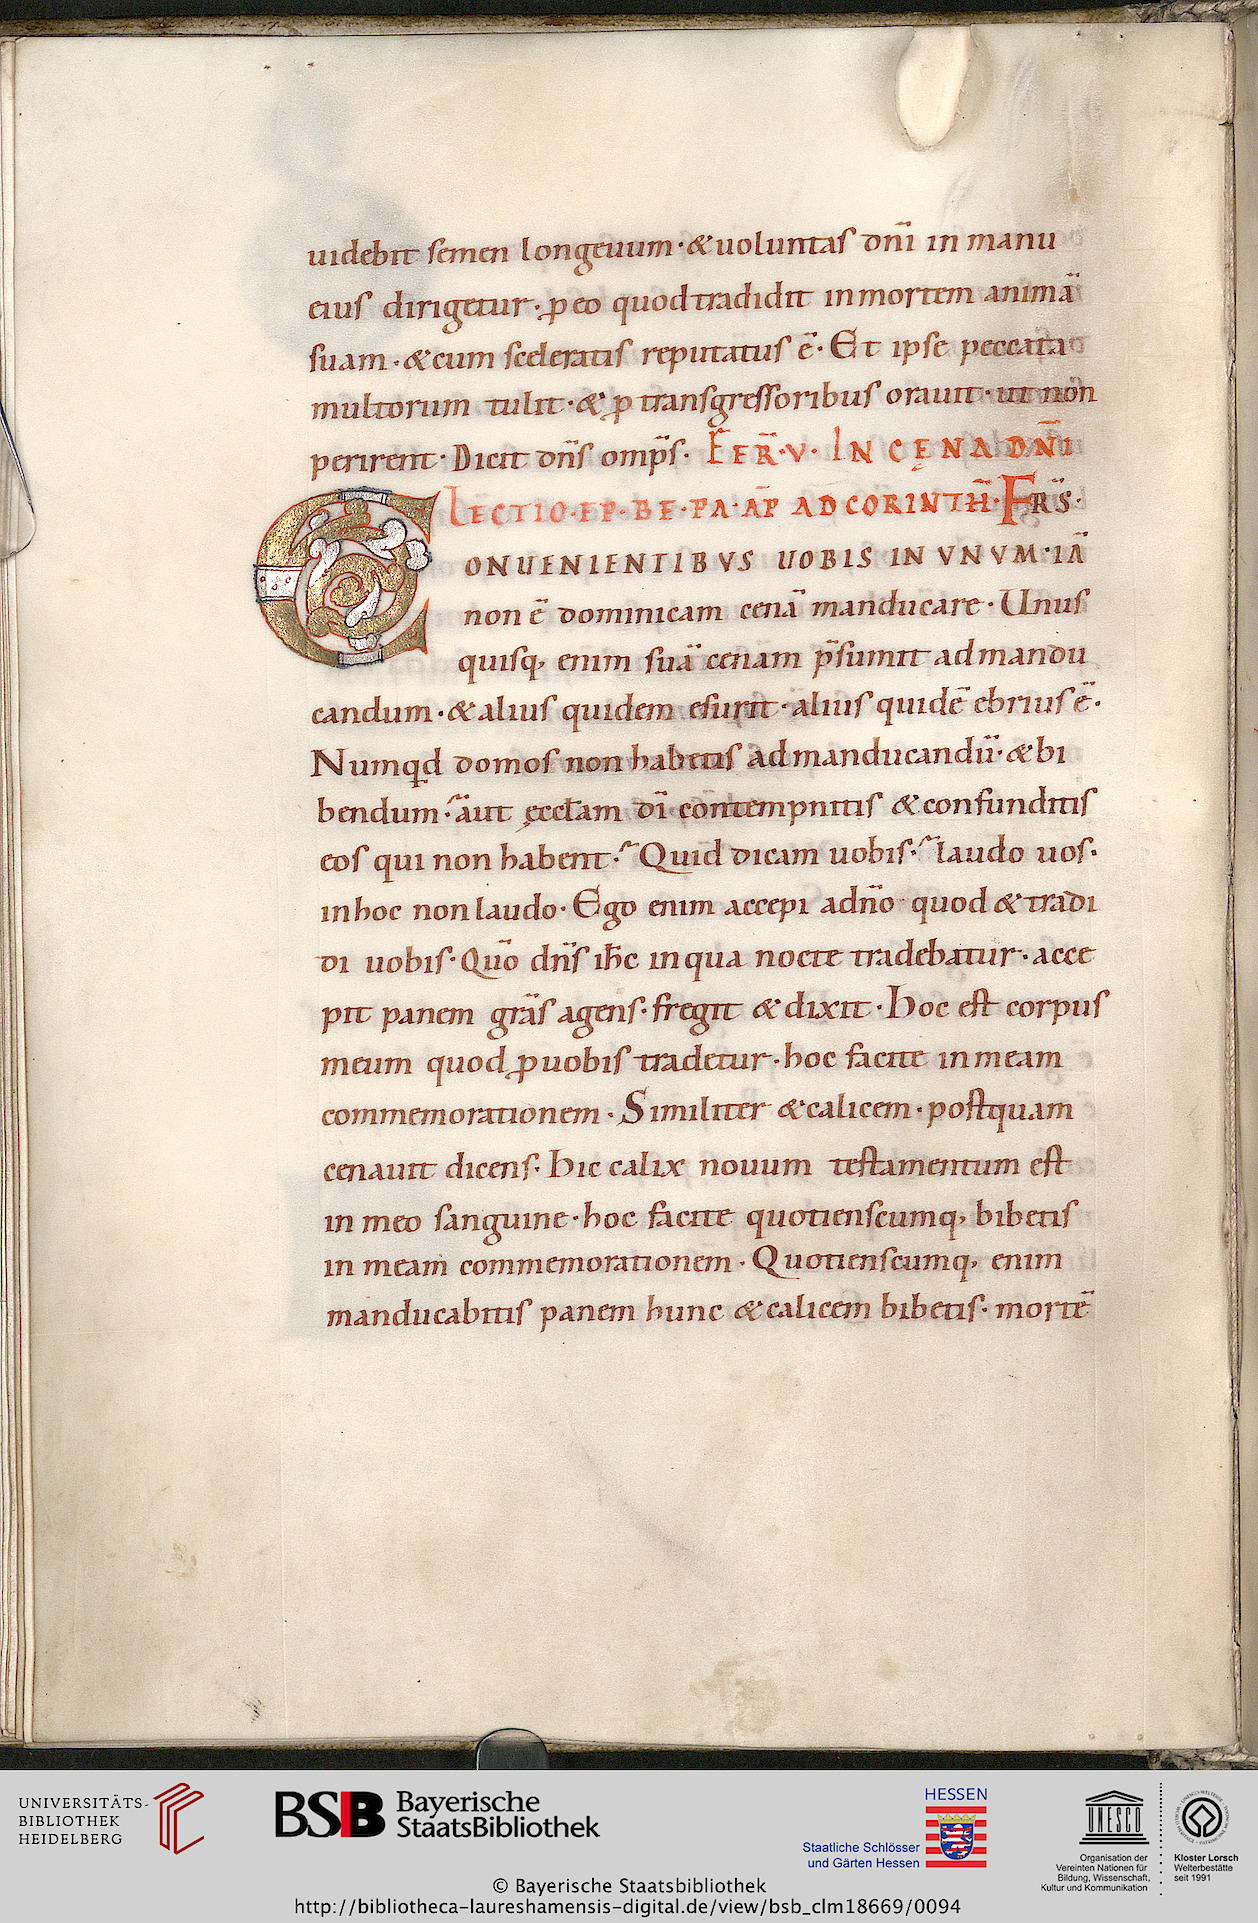 uidebit semen longeuum·&uoluntas dn̄i in manu
eius dirigetur·ꝓ eo quod tradidit in mortem animā
suam·&cum sceleratis reputatus ē·Et ipse peccata
multorum tulit·&ꝓ transgressoribus orauit·ut non
perirent·Dicit dn̄s omp̄s· FER̄·V· IN CENA DN̄I
LECTIO·EP·BE·PA·AP̄ AD CORINTH̄·FR̄S·
CONUENIENTIBVS UOBIS IN VNVM·IĀ
non ē dominicam cenā manducare·Unus
quisq; enim suā cenam p̄sumit ad mandu
candum·&alius quidem esurit·alius quidē ebrius ē·
Numqd domos non habetis ad manducandū·&bi
bendum·aut ęccłam dī contempnitis &confunditis
eos qui non habent·Quid dicam uobis·laudo uos·
in hoc non laudo·Ego enim accepi adn̄o quod &tradi
di uobis·Quō dn̄s ih̄c in qua nocte tradebatur·acce
pit panem grās agens·fregit &dixit·Hoc est corpus
meum quod ꝓ uobis tradetur·hoc facite in meam
commemorationem·Similiter &calicem·postquam
cenauit dicens·Hic calix nouum testamentum est
in meo sanguine·hoc facite quotienscumq; bibetis
in meam commemorationem·Quotienscumq; enim
manducabitis panem hunc &calicem bibetis·mortē
UNIVERSITÄTS-
BIBLIOTHEK
HEIDELBERG
BSB Bayerische
StaatsBibliothek
HESSEN
Staatliche Schlösser
und Gärten Hessen
UNESCO
Organisation der
Vereinten Nationen für
Bildung, Wissenschaft,
Kultur und Kommunikation
Kloster Lorsch
Welterbestätte
seit 1991
© Bayerische Staatsbibliothek
http://bibliotheca-laureshamensis-digital.de/view/bsb_clm18669/0094